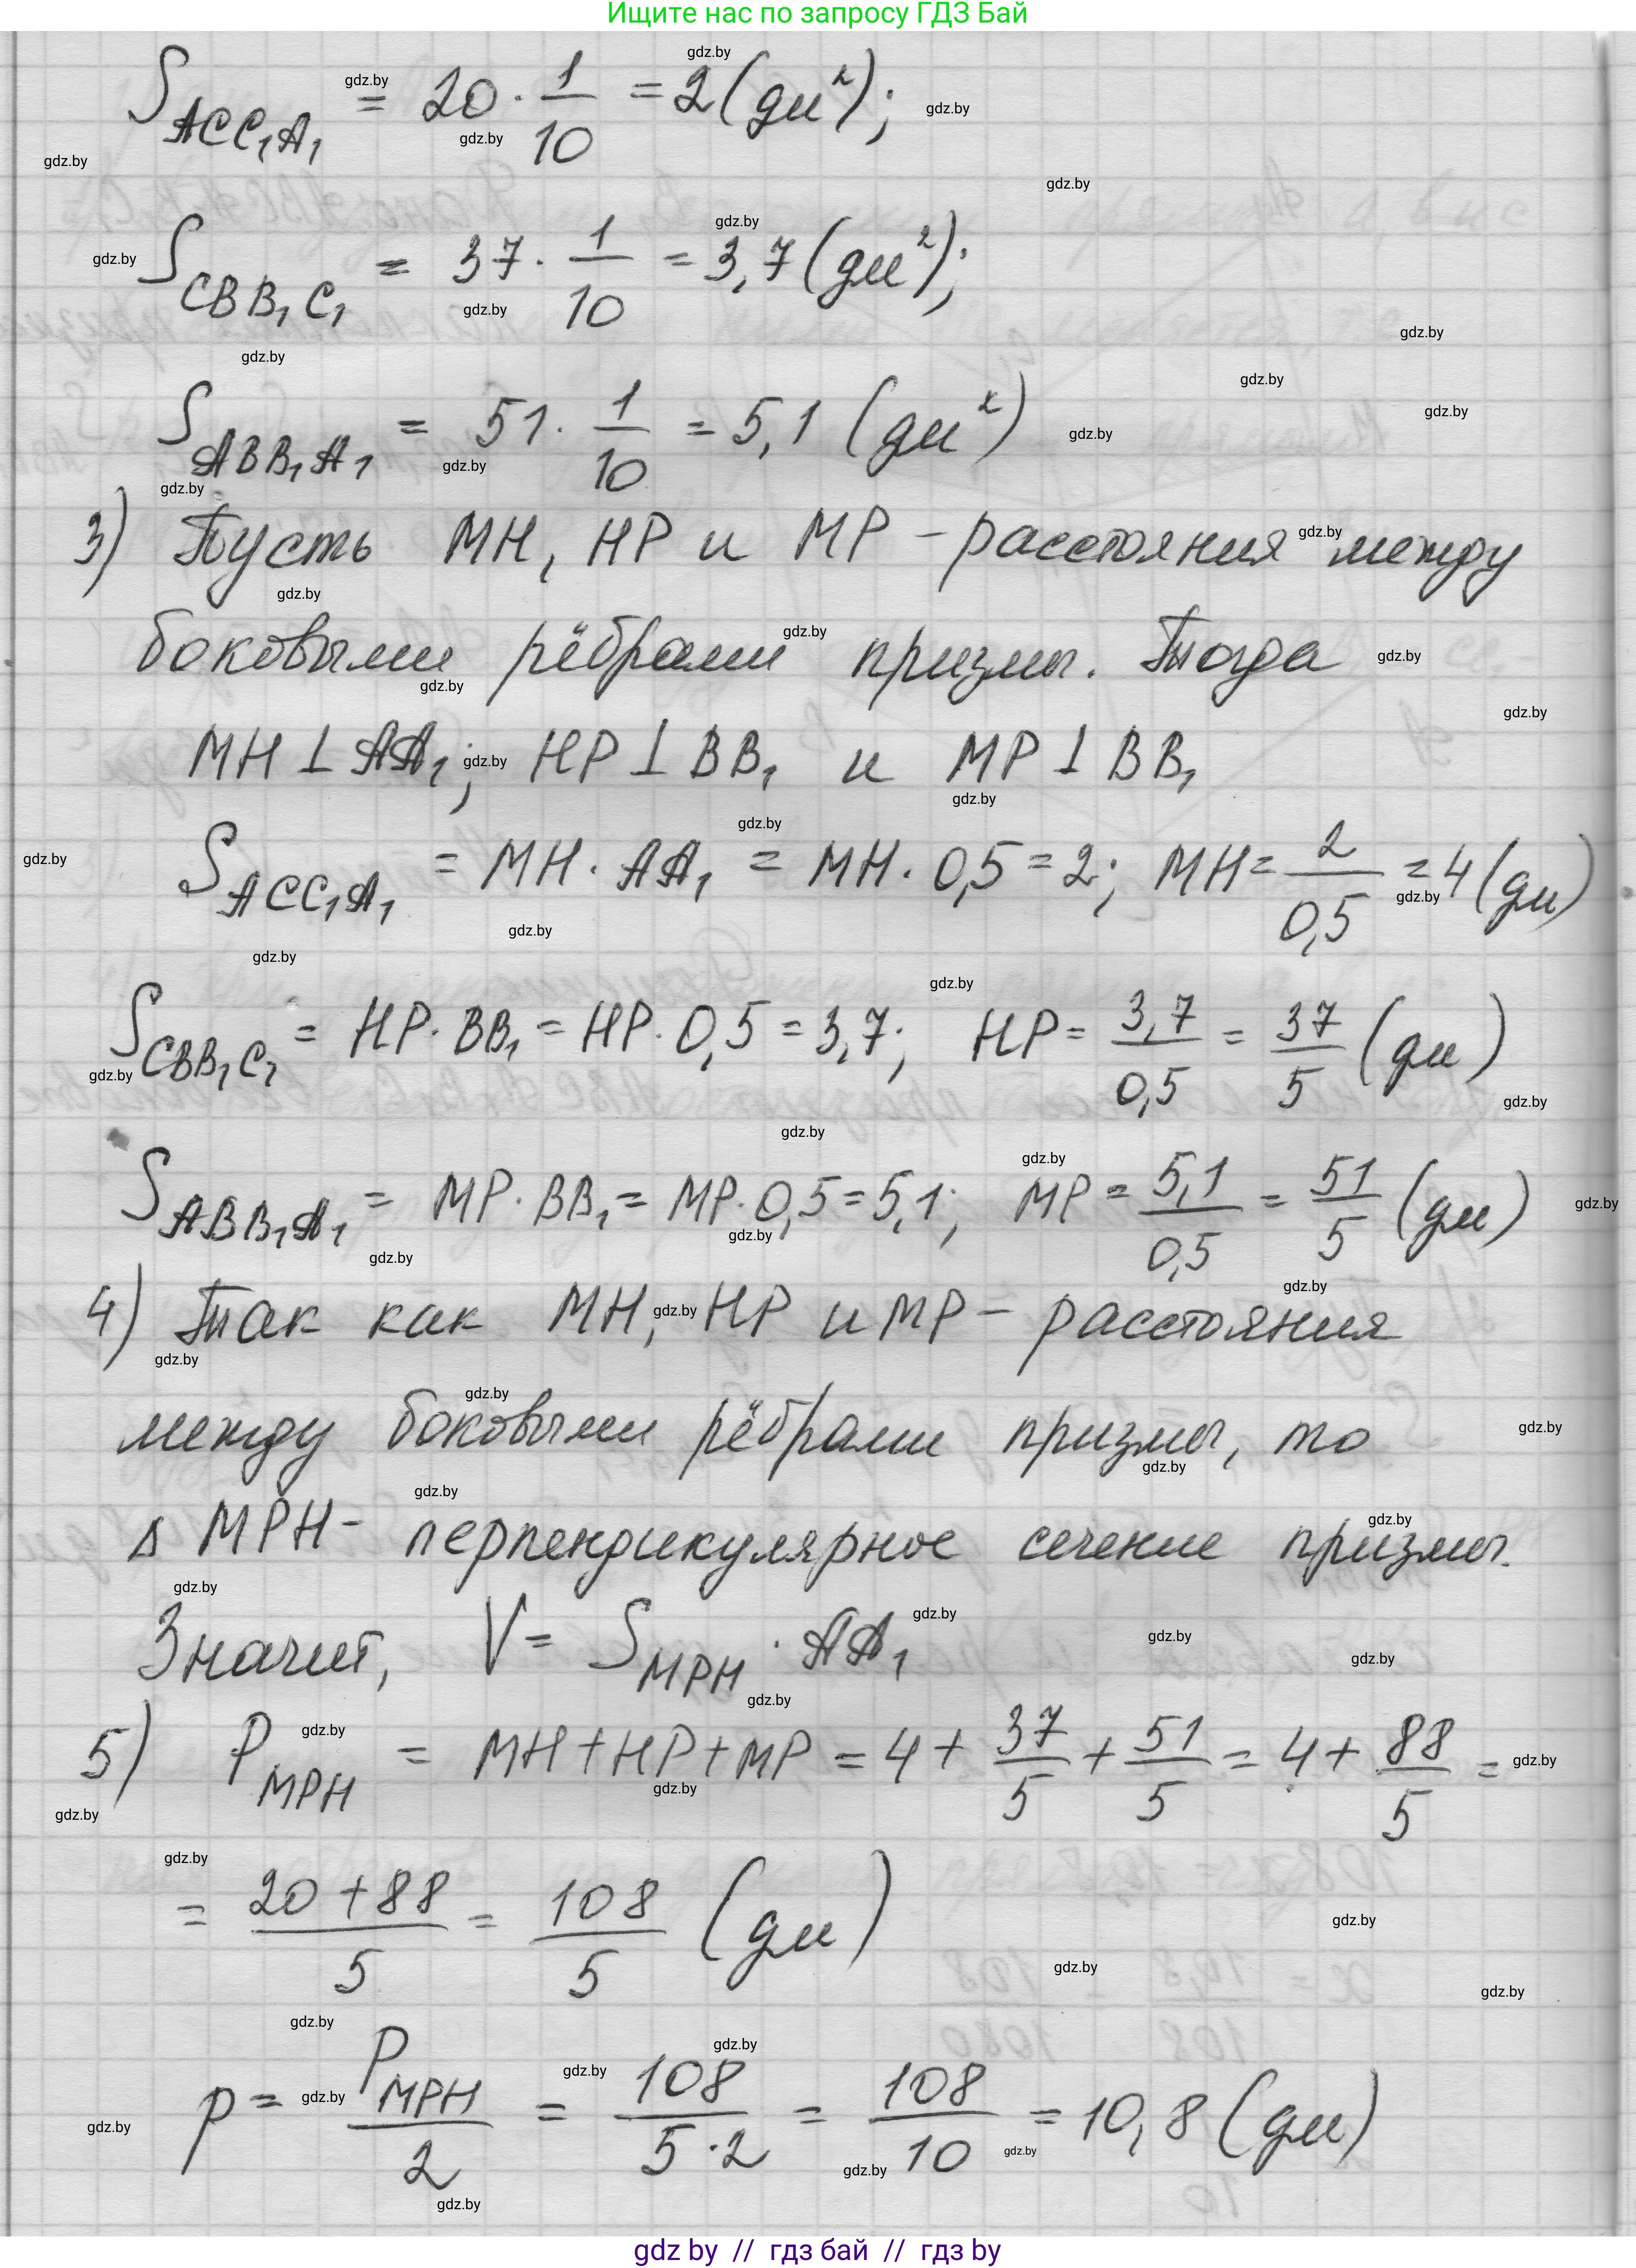 Ищите нас по запросу ГДЗ Бай
S_{ACC₁A₁} = 20 · 1/10 = 2 (дм²);
S_{CBB₁C₁} = 37 · 1/10 = 3,7 (дм²);
S_{ABB₁A₁} = 51 · 1/10 = 5,1 (дм²)
3) Пусть MH, HP и MP – расстояния между
боковыми рёбрами призмы. Тогда
MH ⊥ AA₁; HP ⊥ BB₁ и MP ⊥ BB₁
S_{ACC₁A₁} = MH · AA₁ = MH · 0,5 = 2; MH = 2/0,5 = 4 (дм)
S_{CBB₁C₁} = HP · BB₁ = HP · 0,5 = 3,7; HP = 3,7/0,5 = 37/5 (дм)
S_{ABB₁A₁} = MP · BB₁ = MP · 0,5 = 5,1; MP = 5,1/0,5 = 51/5 (дм)
4) Так как MH, HP и MP – расстояния
между боковыми рёбрами призмы, то
Δ MPH – перпендикулярное сечение призмы.
Значит, V = S_{MPH} · AA₁
5) P_{MPH} = MH + HP + MP = 4 + 37/5 + 51/5 = 4 + 88/5 =
= (20 + 88)/5 = 108/5 (дм)
p = P_{MPH}/2 = 108/(5 · 2) = 108/10 = 10,8 (дм)
gdz by // гдз бай // гдз by